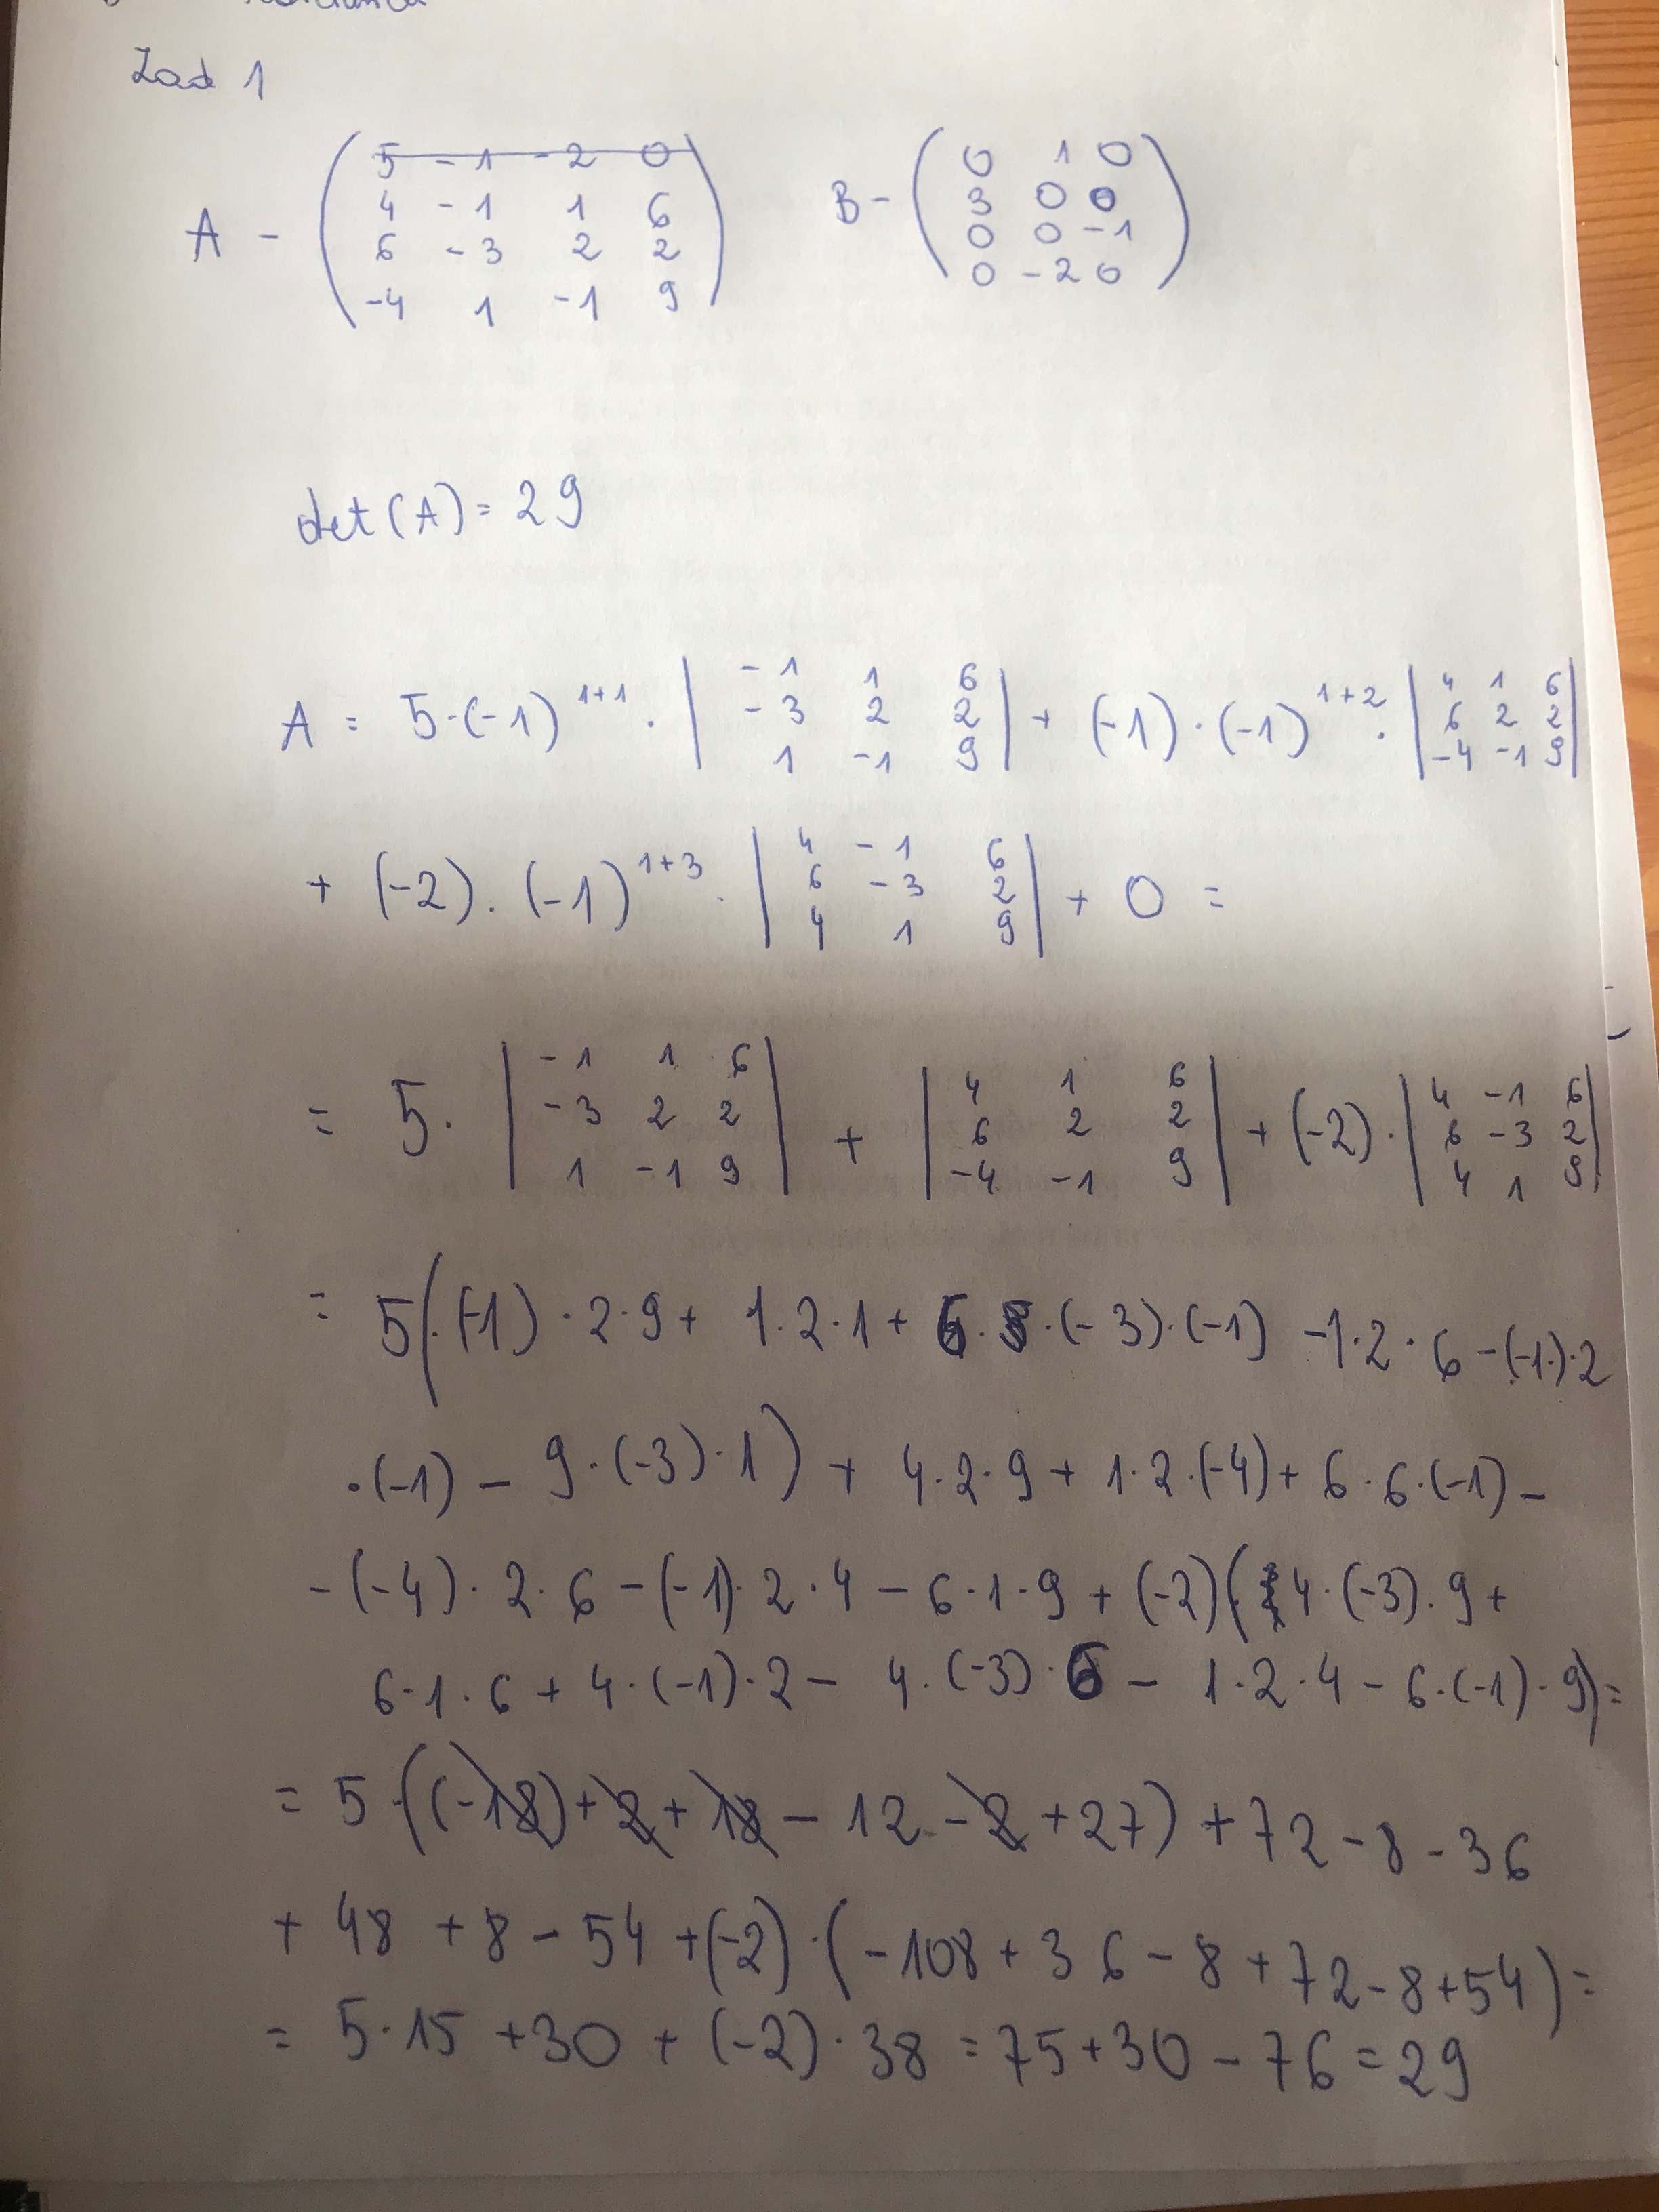 Zad 1
A - ( 5 -1 -2 0      B - ( 0 1 0
4 -1 1 6      3 0 0
6 -3 2 2      0 0 -1
-4 1 -1 9 )      0 -2 0 )
det(A) = 29
A = 5·(-1)^{1+1} · | -1 1 6 ; -3 2 2 ; 1 -1 9 | + (-1)·(-1)^{1+2} · | 4 1 6 ; 6 2 2 ; -4 -1 9 |
+ (-2)·(-1)^{1+3} · | 4 -1 6 ; 6 -3 2 ; 4 1 9 | + 0 =
= 5· | -1 1 6 ; -3 2 2 ; 1 -1 9 | + | 4 1 6 ; 6 2 2 ; -4 -1 9 | + (-2)· | 4 -1 6 ; 6 -3 2 ; 4 1 9 |
= 5(·(-1)·2·9 + 1·2·1 + 6·(-3)·(-1) -1·2·6 -(-1·)·2
·(-1) - 9·(-3)·1) + 4·2·9 + 1·2·(-4) + 6·6·(-1) -
-(-4)·2·6 -(-1)·2·4 - 6·1·9 + (-2)(4·(-3)·9 +
6·1·6 + 4·(-1)·2 - 4·(-3)·6 - 1·2·4 - 6·(-1)·9) =
= 5·((-18) + 2 + 18 - 12 - 2 + 27) + 72 - 8 - 36
+ 48 + 8 - 54 + (-2)·(-108 + 36 - 8 + 72 - 8 + 54) =
= 5·15 + 30 + (-2)·38 = 75 + 30 - 76 = 29